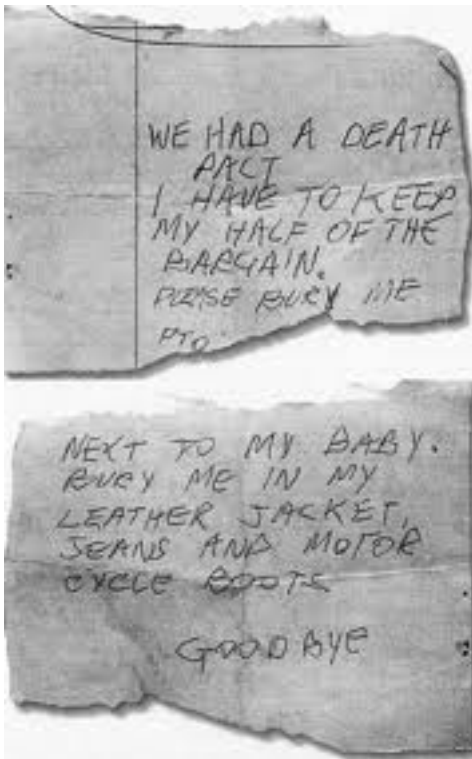 WE HAD A DEATH
PACT
I HAVE TO KEEP
MY HALF OF THE
BARGAIN.
PLEASE BURY ME
PTO
NEXT TO MY BABY.
BURY ME IN MY
LEATHER JACKET,
JEANS AND MOTOR
CYCLE BOOTS
GOODBYE